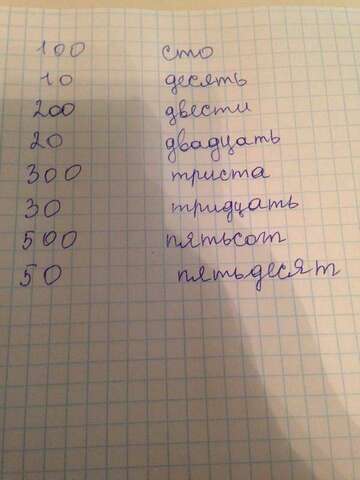 100 сто
10 десять
200 двести
20 двадцать
300 триста
30 тридцать
500 пятьсот
50 пятьдесят